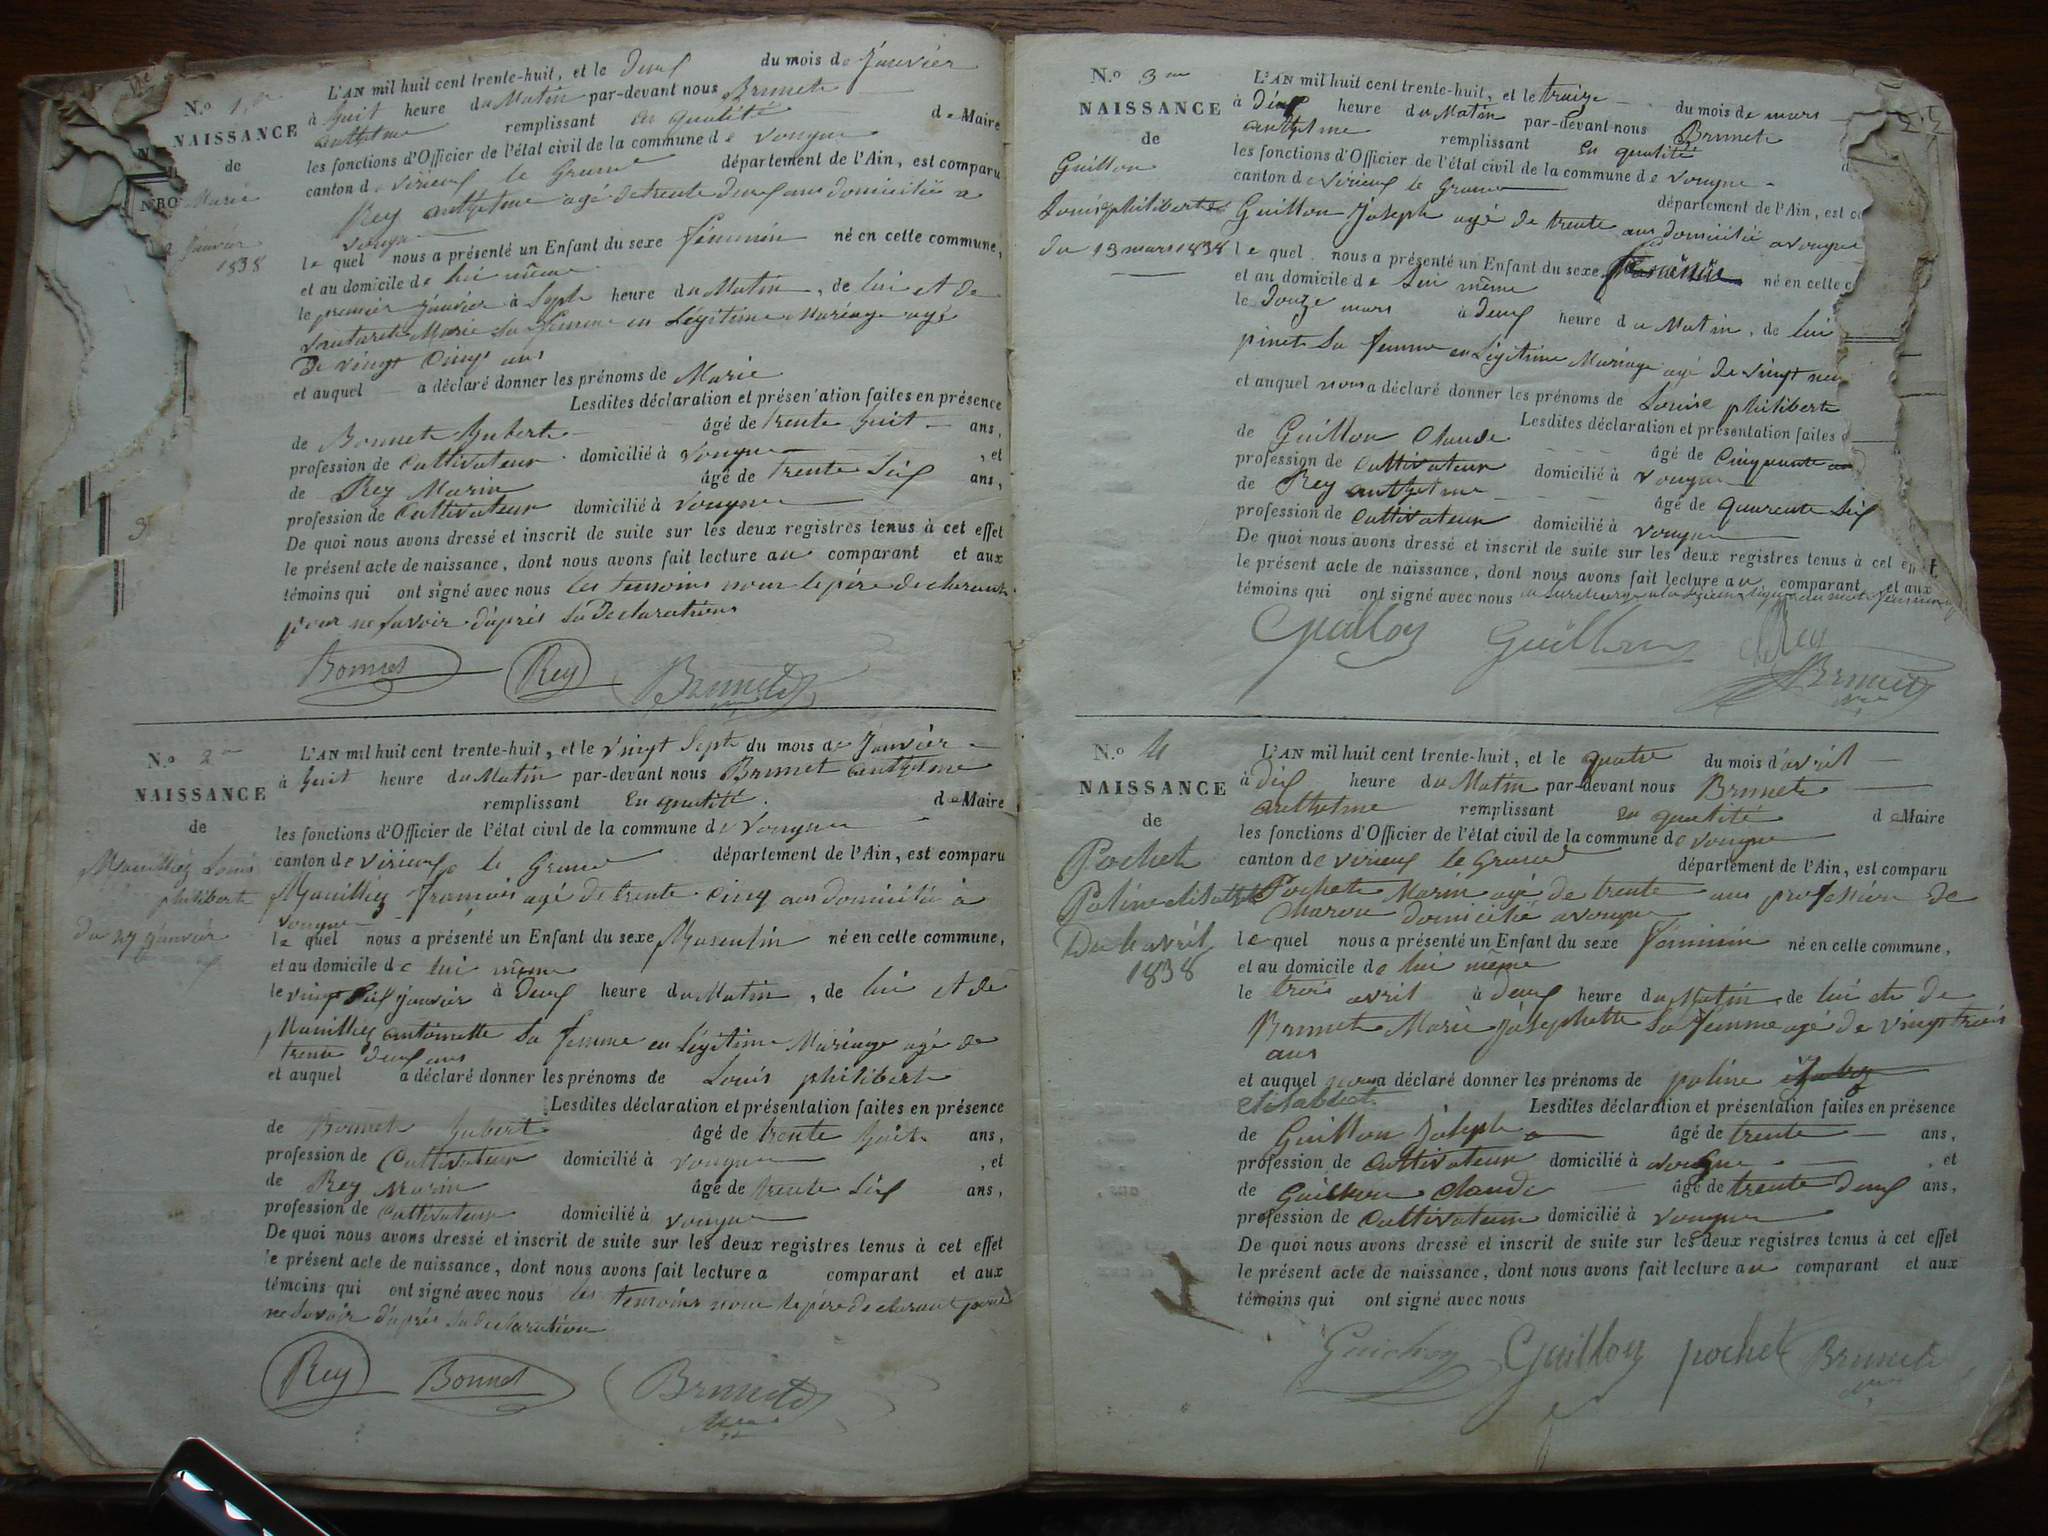 N.o 1.er
NAISSANCE
de
Marie
2 Janvier
1838
L'AN mil huit cent trente-huit, et le deux du mois de Janvier
à huit heure du Matin par-devant nous Brunet
anthelme remplissant en qualité de Maire
les fonctions d'Officier de l'état civil de la commune de vongne
canton de virieux le Grand département de l'Ain, est comparu
Rey anthelme agé de trente deux ans domicilié a
vongne
le quel nous a présenté un Enfant du sexe féminin né en cette commune,
et au domicile de lui même
le premier Janvier à Sept heure du Matin, de lui et de
Marie Sa femme en Légitime Mariage agé
De vingt Cinq ans
et auquel a déclaré donner les prénoms de Marie
Lesdites déclaration et présentation faites en présence
de Bonnet hubert âgé de trente huit ans,
profession de Cultivateur domicilié à vongne, et
de Rey Marin âgé de trente Six ans,
profession de Cultivateur domicilié à vongne
De quoi nous avons dressé et inscrit de suite sur les deux registres tenus à cet effet
le présent acte de naissance, dont nous avons fait lecture au comparant et aux
témoins qui ont signé avec nous les temoins nom le père declarant
pour ne savoir d'après sa Declaration
Bonnet Rey Brunet
N.o 2
NAISSANCE
de
Mauilhez Louis
philibert
du 27 Janvier
L'AN mil huit cent trente-huit, et le vingt Sept du mois de Janvier
à huit heure du Matin par-devant nous Brunet anthelme
remplissant en qualité de Maire
les fonctions d'Officier de l'état civil de la commune de vongne
canton de virieux le Grand département de l'Ain, est comparu
Mauilhez françois agé de trente cinq ans domicilié à
vongne
le quel nous a présenté un Enfant du sexe Masculin né en cette commune,
et au domicile de lui même
le vingt Six janvier à deux heure du Matin, de lui et de
Mauilhez antoinette sa femme en Légitime Mariage agé de
trente deux ans
et auquel a déclaré donner les prénoms de Louis philibert
Lesdites déclaration et présentation faites en présence
de Bonnet hubert âgé de trente huit ans,
profession de Cultivateur domicilié à vongne, et
de Rey Marin âgé de trente Six ans,
profession de Cultivateur domicilié à vongne
De quoi nous avons dressé et inscrit de suite sur les deux registres tenus à cet effet
le présent acte de naissance, dont nous avons fait lecture a comparant et aux
témoins qui ont signé avec nous les temoins nom le père declarant pour
ne savoir d'après sa declaration
Rey Bonnet Brunet
N.o 3
NAISSANCE
de
Guillon
Louise philiberte
du 13 mars 1838
L'AN mil huit cent trente-huit, et le traize du mois de mars
à dix heure du Matin par-devant nous Brunet
anthelme remplissant en qualité d
les fonctions d'Officier de l'état civil de la commune de vongne
canton de virieux le Grand département de l'Ain, est
Guillon Joseph agé de trente ans domicilié a vongne
le quel nous a présenté un Enfant du sexe né en cette
et au domicile de lui même
le douze mars à deux heure du Matin, de lui
pinet sa femme en Légitime Mariage agé de vingt
et auquel nous a déclaré donner les prénoms de Louise philiberte
Lesdites déclaration et présentation faites
de Guillon Claude âgé de Cinquante
profession de Cultivateur domicilié à vongne
de Rey anthelme âgé de quarente Six
profession de Cultivateur domicilié à vongne
De quoi nous avons dressé et inscrit de suite sur les deux registres tenus à cet
le présent acte de naissance, dont nous avons fait lecture au comparant et aux
témoins qui ont signé avec nous
Guillon Guillon Rey
Brunet
N.o 4
NAISSANCE
de
Pochet
Poline
Du 4 avril
1838
L'AN mil huit cent trente-huit, et le quatre du mois d'avril
à dix heure du Matin par-devant nous Brunet
anthelme remplissant en qualité de Maire
les fonctions d'Officier de l'état civil de la commune de vongne
canton de virieux le Grand département de l'Ain, est comparu
Pochet Marin agé de trente ans profession de
Maron domicilié a vongne
le quel nous a présenté un Enfant du sexe féminin né en cette commune,
et au domicile de lui même
le trois avril à deux heure du Matin, de lui et de
Brunet Marie Josephette sa femme agé de vingt trois
ans
et auquel nous a déclaré donner les prénoms de poline
Lesdites déclaration et présentation faites en présence
de Guillon Joseph âgé de trente ans,
profession de Cultivateur domicilié à vongne, et
de Claude âgé de trente deux ans,
profession de Cultivateur domicilié à vongne
De quoi nous avons dressé et inscrit de suite sur les deux registres tenus à cet effet
le présent acte de naissance, dont nous avons fait lecture au comparant et aux
témoins qui ont signé avec nous
Guillon pochet Brunet